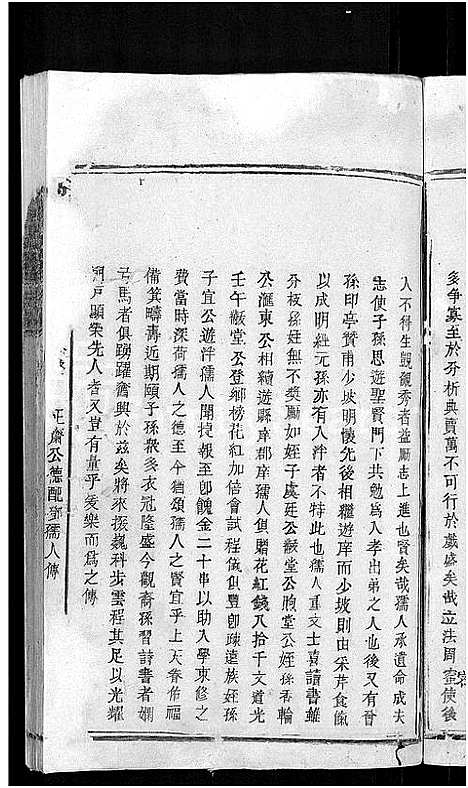 多爭寡至於分析典賣萬不可行於戲盛矣哉立法周密使後
人不得生覬覦秀者益勵志上進也賢矣哉孺人承遺命成夫
志使子孫思遊聖賢門下共勉為入孝出弟之人也後又有晉
孫印亭贊甫少坡明懷先後相繼遊庠而少坡則由采芹食餼
以成明經元孫亦有入泮者不特此也孺人重文士喜讀書雖
分枝孫姪無不獎勵如姪子處廷公巖堂公煦堂公姪孫香輪
公滙東公相續遊縣庠郡庠孺人俱贈花紅錢八拾千文道光
壬午巖堂公登鄉榜花紅加倍會試程儀俱豐即疎遠族姪孫
子宜公遊泮孺人聞捷報至即餽金二十串以助入學束修之
費當時深荷孺人之德至今猶頌孺人之賢宜乎上天眷佑福
備箕疇壽近期頤子孫眾多衣冠隆盛今觀裔孫習詩書者嫻
弓馬者俱踴躍奮興於茲矣將來掇巍科步雲程其足以光耀
門戶顯榮先人者又豈有量乎爰樂而為之傳
正肅公德配鄒孺人傳